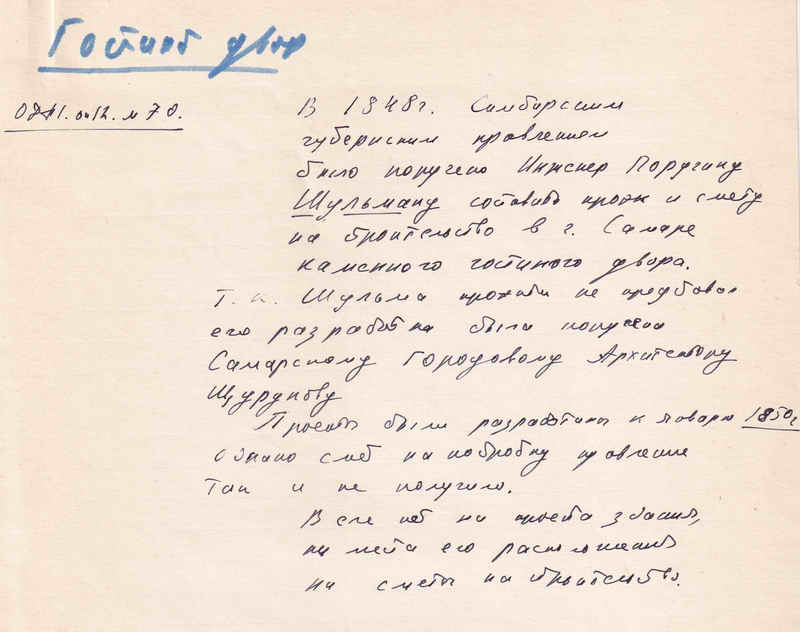 Гостиный двор
В 1848г. Симбирским
губернским правлением
было поручено Инженер Поручику
Шульману составить проэк и смету
на строительство в г. Самаре
каменного гостиного двора.
Т. к. Шульма проэкта не представил
его разработка была поручена
Самарскому Городовому Архитектору
Щурупову
Проекты были разработаны к январю 1850г
однако смет на постройку правление
так и не получило.
В нет ни проекта здания,
ни места его расположения
ни сметы на строительство.